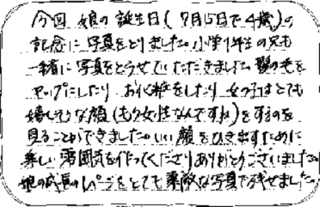 今回 娘の誕生日(7月15日で4歳)の
記念に写真をとりました。小学1年生の兄も
一緒に写真をとらせていただきました。髪の毛を
アップにしたり お化粧をしたり 女の子はとても
嬉しそうな顔(もう女性なんですね)をするのを
見ることができました。いい顔をひき出すために
楽しい雰囲気を作ってくださりありがとうございました。
娘の成長の1ページをとても素敵な写真で残せました。